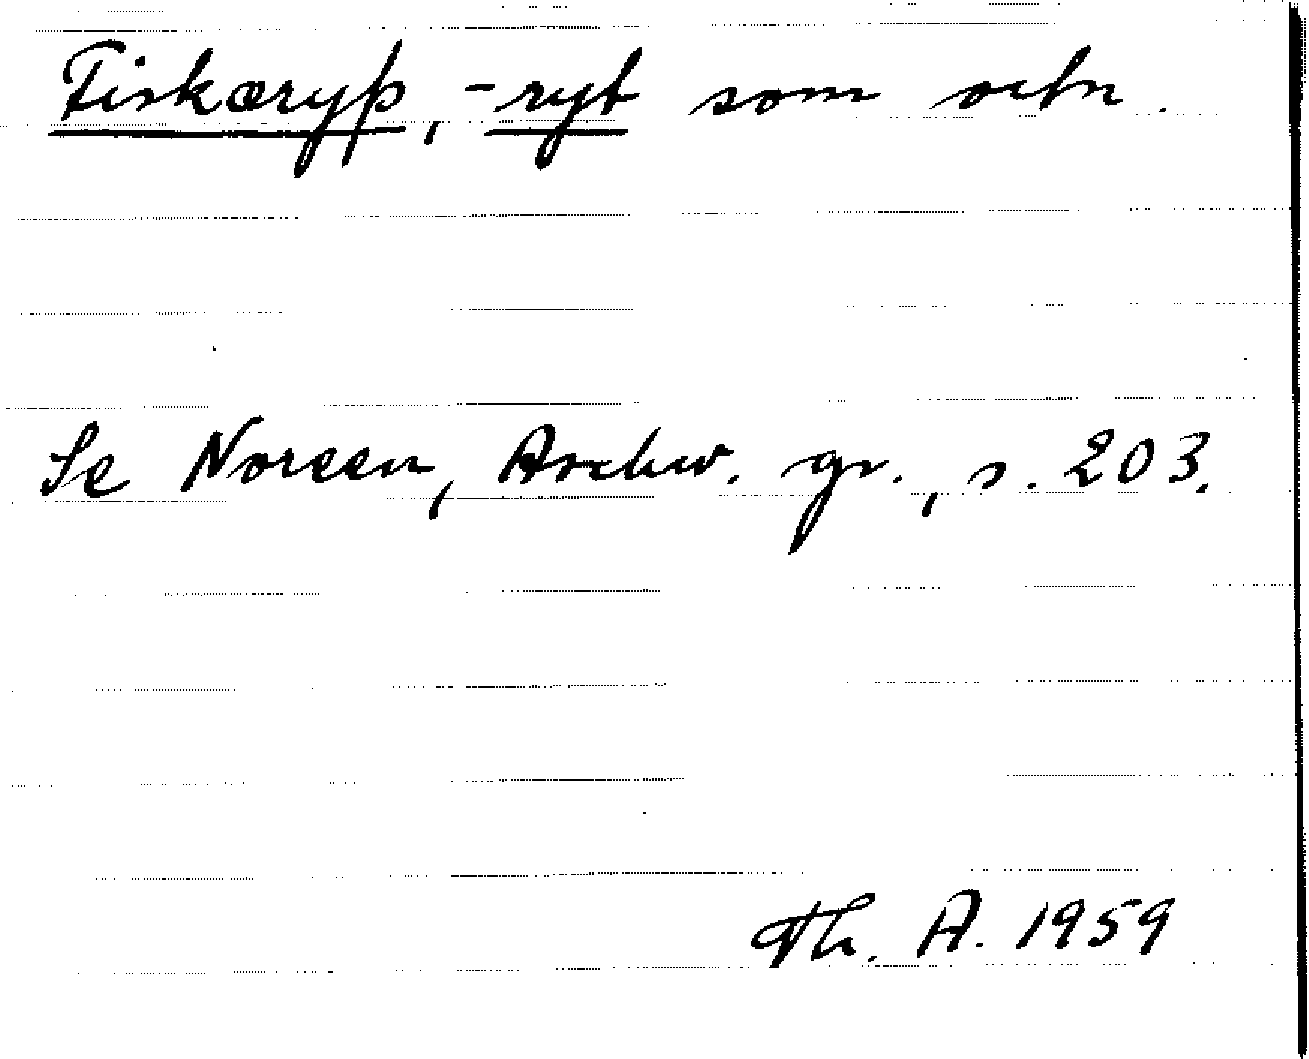 Fiskæryþ, -ryt som ortn.
Se Noreen, Aschw. gr., s. 203.
Th. A. 1959